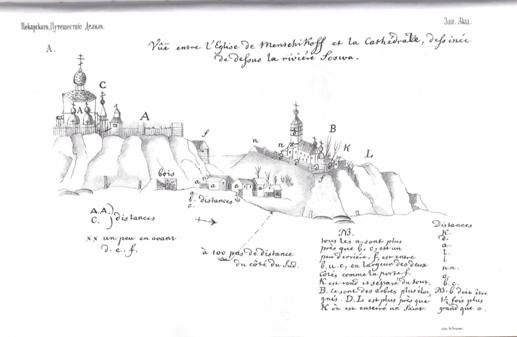 Пекарскаго, Путешествіе Делиля.
Зап. Акад.
A.
Vüe entre l'Eglise de Menschikoff et la Cathédrale, dessinée
de dessus la rivière Soswa.
C
A
A
A
f
n
n
B
K
L
bois
a
a
a
a
f
g.
b. distances
c.
A.A.
C. } distances
xx un peu en avant
d. e. f.
à 100 pas de distance
du côté du Sud.
NB.
tous les a. sont plus
près que b. c, est un
peu derrière, f. est entre
b. u. c, en largeur des deux
côtés comme la porte f.
K est rond et séparé du tout.
B. ce sont des arbres plus éloi-
gnés. D. L est plus près que
K où est enterré un Saint.
Distances
K.
d.
a.
l.
i.
n.n.
g.
b. c.
NB. b doit être
1½ fois plus
grand que a.